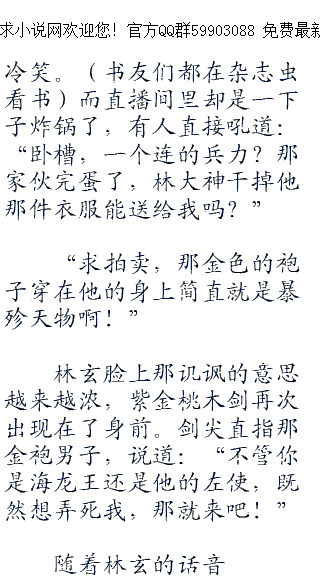 求小说网欢迎您！官方QQ群59903088 免费最新
冷笑。（书友们都在杂志虫
看书）而直播间里却是一下
子炸锅了，有人直接吼道：
“卧槽，一个连的兵力？那
家伙完蛋了，林大神干掉他
那件衣服能送给我吗？”
“求拍卖，那金色的袍
子穿在他的身上简直就是暴
殄天物啊！”
林玄脸上那讥讽的意思
越来越浓，紫金桃木剑再次
出现在了身前。剑尖直指那
金袍男子，说道：“不管你
是海龙王还是他的左使，既
然想弄死我，那就来吧！”
随着林玄的话音